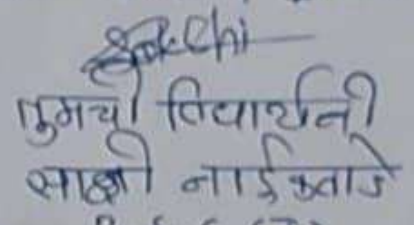 Sakshi
तुमची विद्यार्थीनी
साक्षी नाईकवाडे